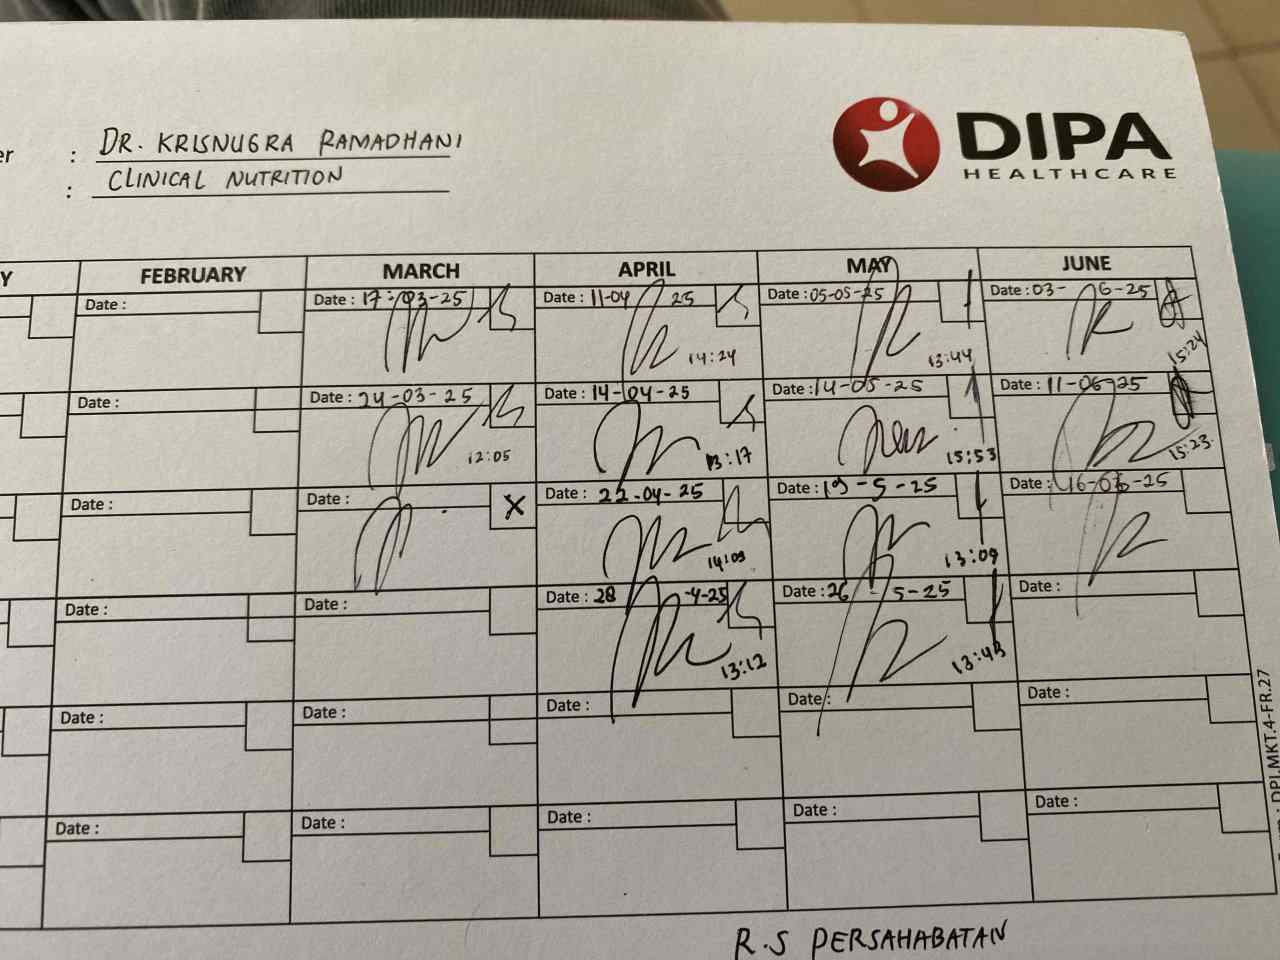 er : DR. KRISNUGRA RAMADHANI
: CLINICAL NUTRITION
DIPA
HEALTHCARE
Y FEBRUARY MARCH APRIL MAY JUNE
Date : Date : 17-03-25 Date : 11-04 25 Date : 05-05-25 Date : 03- 6-25
14:24 13:44 15:24
Date : Date : 24-03-25 Date : 14-04-25 Date : 14-05-25 Date : 11-06-25
12:05 13:17 15:53 15:23
Date : Date : X Date : 22-04-25 Date : 19-5-25 Date : 16-06-25
14:09 13:09
Date : Date : Date : 28 -4-25 Date : 26 - 5-25 Date :
13:12 13:43
Date : Date : Date : Date : Date :
Date : Date : Date : Date : Date :
DPI.MKT.4-FR.27
R.S PERSAHABATAN